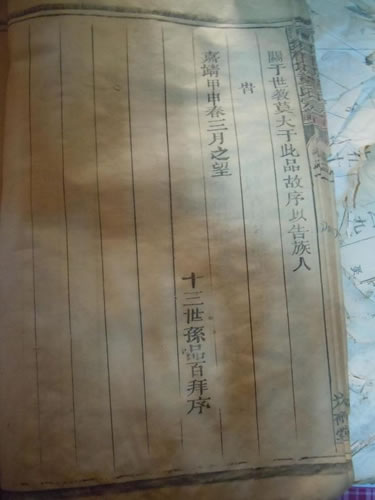 關于世教莫大于此品故序以告族人
旹
嘉靖甲申春三月之望
十三世孫品百拜序